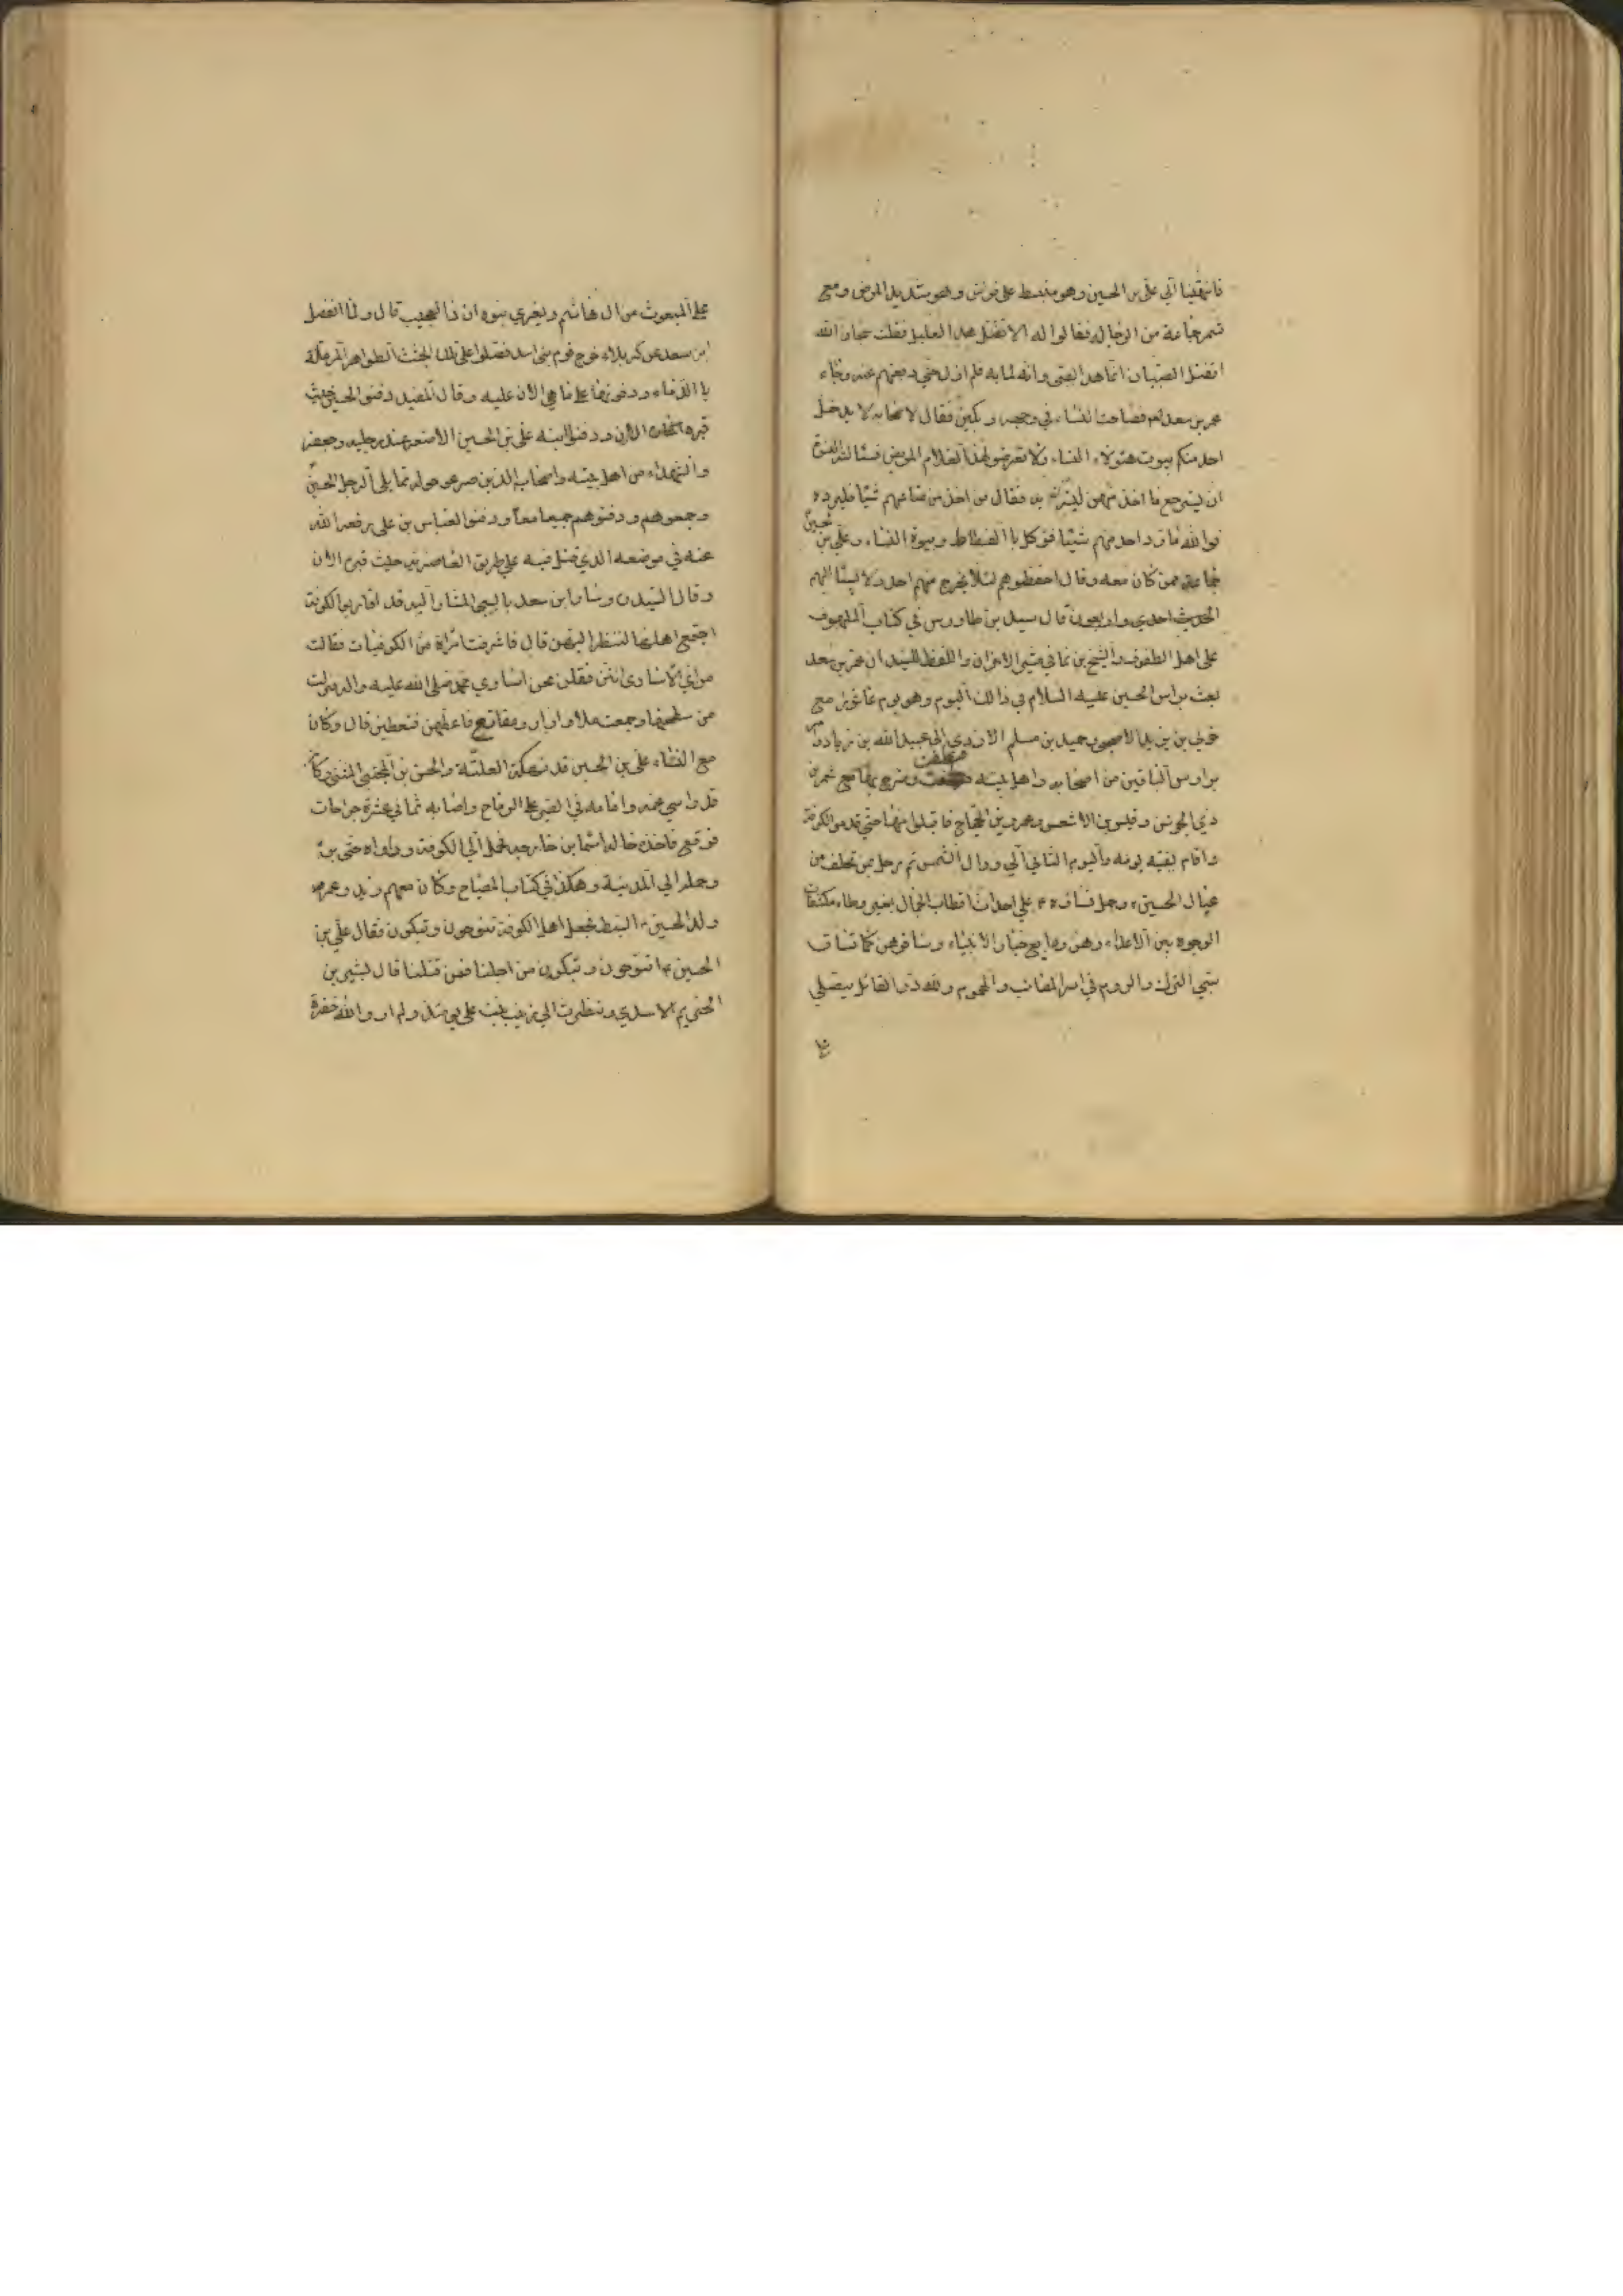 فانتهينا الي علي بن الحسين وهو منبسط علي فراش وهو شديد المرض ومع
شمر جماعة من الرجاله فقالوا له الا نقتل هذا العليل فقلت سبحان الله
اتقتل الصبيان انما هذا الصبي وانه لما به فلم ازل حتي دفعتهم عنه وجاء
عمر بن سعد فصاحت النساء في وجهه وبكين فقال لاصحابه لا يدخل
احد منكم بيوت هٔولاء النساء ولا تعرضو لهذا الغلام المريض فسالته النسوة
ان يسترجع ما اخذ منهن ليتسترن به فقال من اخذ من متاعهم شيئا فليرده
فوالله ما رد احد منهم شيئا فوكل باالفسطاط وبيوة النساء وعلي بن الحسين
جماعة ممن كان معه وقال احفظوهم لئلا يخرج منهم احد ولا يساء اليهم
الحديث احدي واربعون قال سيد بن طاورس في كتاب الملهوف
علي اهل الطفوف والشيخ بن نما في مثير الاحزان واللفظ للسيد ان عمر بن سعد
بعث براس الحسين عليه السلام في ذالك اليوم وهو يوم عاشورا مع
خولي بن يزيد الاصبحي وحميد بن مسلم الازدي الي عبيد الله بن زياد وامر
براوس الباقين من اصحابه واهل بيته فنظفت وسرح بها مع شمر بن
ذي الجوشن وقيس بن الاشعس وعمرو بن الحجاج فاقبلوا بها حتي قدمو الكوفة
واقام بقيه يومه واليوم الثاني الي زوال الشمس ثم رحل بمن تخلف من
عيال الحسين وحمل نساءه علي احداث اقطاب الجمال بغير وطاء مكشفات
الوجوه بين الاعداء وهن ودايع خيار الانبياء وساقوهن كما تساق
سبي الترك والروم في اسر المصائب والهموم ولله در القائل يصلي
علي المبعوث من ال هاشم ويغزي بنوه ان ذا لعجيب قال ولما انفصل
ابن سعد عن كربلاء خرج قوم بني اسد فصلوا علي تلك الجثث الطواهر المرملة
باالدماء ودفنوها علي ما هي الان عليه وقال المفيد دفنو الحسين حيث
قبره الان ودفنوا ابنه علي بن الحسين الاصغر عند رجليه وحفرو
والشهداء من اهل بيته واصحابه الذين صرعو حوله مما يلي الرجل الحسين
وجمعوهم ودفنوهم جميعا معا ودفنو العباس بن علي رفعه الله
عنه في موضعه الذي قتل فيه علي طريق الغاضرية حيث قبره الان
وقال السيد ن وسار ابن سعد بالسبي المشار اليه قد اقاربوا الكوفة
اجتمع اهلها لننظر اليهن قال فاشرفت امراة من الكوفيات فقالت
من اي الاساري انتن فقلن نحن اساري محمد صلي الله عليه واله فنزلت
من سطحها وجمعت ملا وازار ومقانع فاعطتهن فتغطين قال وكان
مع النساء علي بن الحسين قد نهكة العلة والحسن بن المجتبي المثني وكان
قد واسي عمه وامامه في الصبر علي الرماح واصابه ثماني عشرة جراحات
فوقع فاخذه خاله اسما بن خارجه فحمله الي الكوفة وداواه حتي برء
وحمله الي المدينة وهكذا في كتاب المصباح وكان معهم وزيد وعمرو
ولد الحسين السبط فجعل اهل الكوفة تنوحون وتبكون فقال علي بن
الحسين اتنوحون وتبكون من اجلنا فمن قتلنا قال بشير بن
الخزيم الاسدي ونظرت الي زينب بنت علي يومئذ ولم ار والله خفرة